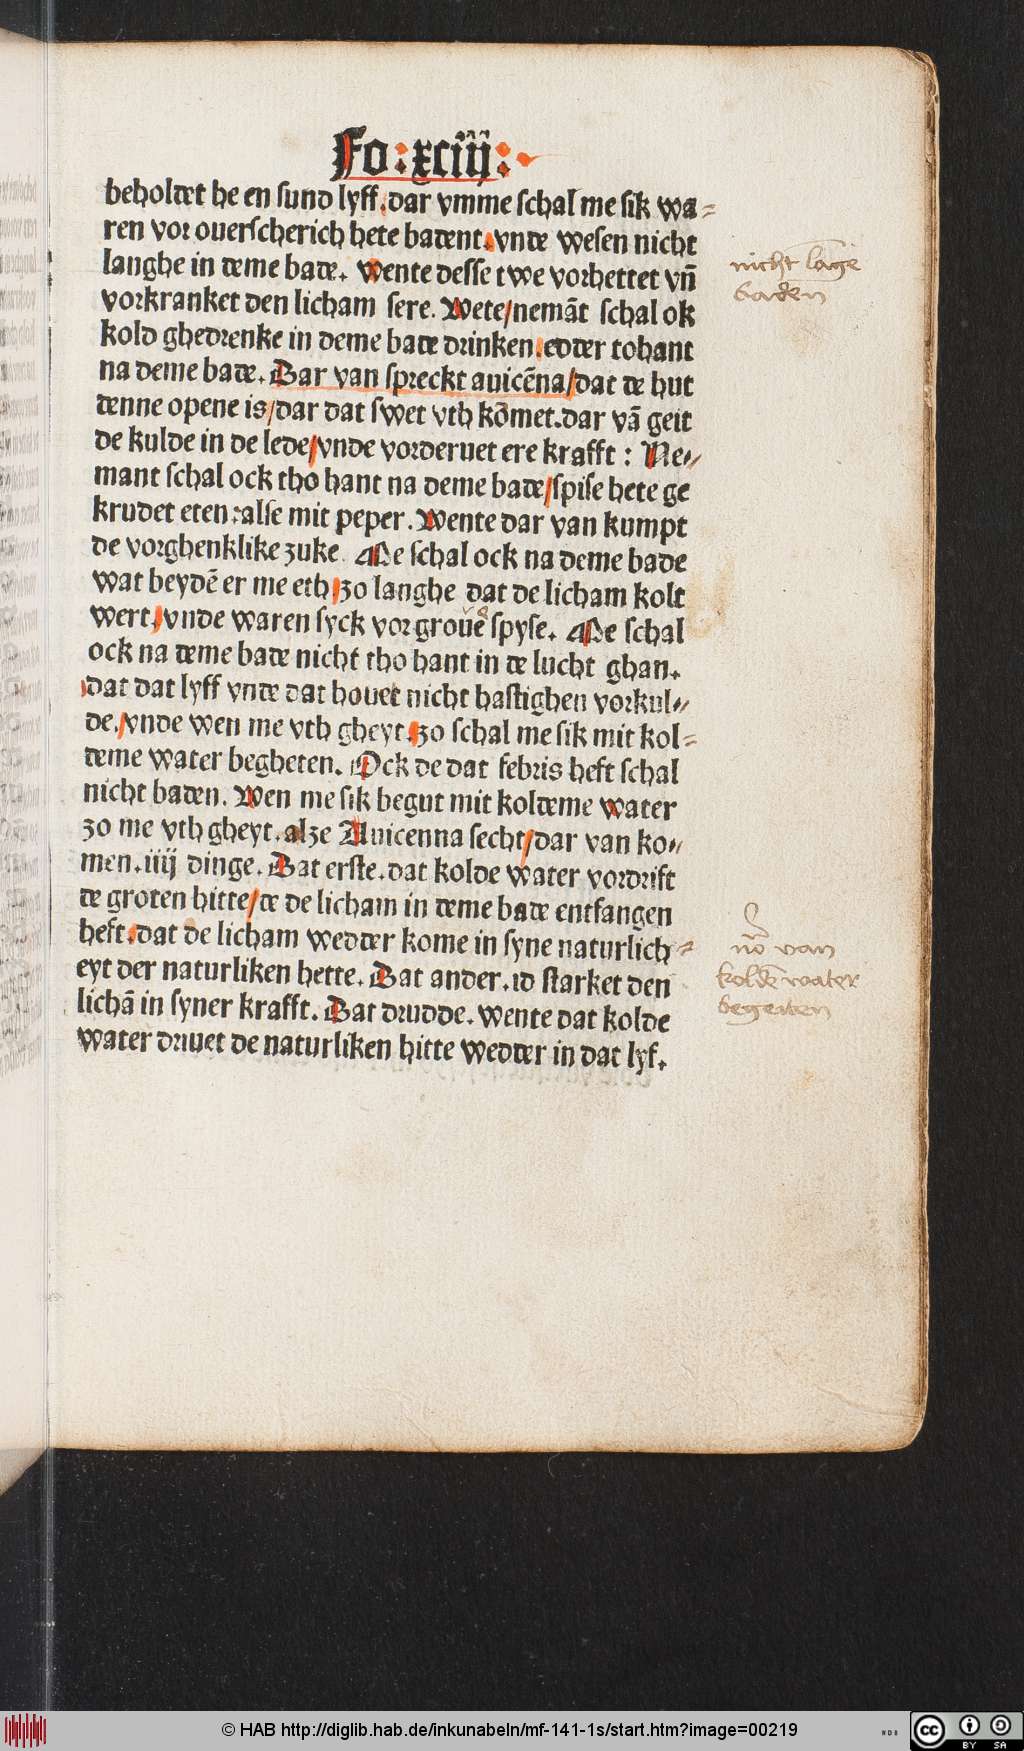 Fo: xciiij:
beholdet he en sund lyff. dar vmme schal me sik wa⸗
ren vor ouerscherich hete badent. vnde wesen nicht
langhe in deme bade. Wente desse twe vorhettet vn̄
vorkranket den licham sere. Wete/nemāt schal ok
kold ghedrenke in deme bade drinken. edder tohant
na deme bade. Dar van spreckt auicēna/dat de hut
denne opene is/dar dat swet vth kōmet. dar vā geit
de kulde in de lede/vnde vorderuet ere krafft: Ne⸗
mant schal ock tho hant na deme bade/spise hete ge
krudet eten: alse mit peper. Wente dar van kumpt
de vorghenklike zuke. Me schal ock na deme bade
wat beydē er me eth/zo langhe dat de licham kolt
wert/vnde waren syck vor grouē spyse. Me schal
ock na deme bade nicht tho hant in de lucht ghan.
dat dat lyff vnde dat houet nicht hastighen vorkul⸗
de. vnde wen me vth gheyt. zo schal me sik mit kol⸗
deme water begheten. Ock de dat febris heft schal
nicht baden. Wen me sik begut mit koldeme water
zo me vth gheyt. alze Auicenna secht/dar van ko⸗
men. iiij dinge. Dat erste. dat kolde water vordrift
de groten hitte/de de licham in deme bade entfangen
heft. dat de licham wedder kome in syne naturlich⸗
eyt der naturliken hette. Dat ander. id starket den
lichā in syner krafft. Dat drudde. wente dat kolde
water driuet de naturliken hitte wedder in dat lyf.
nicht lāge
baden
nō van
kolden water
begeiten
© HAB http://diglib.hab.de/inkunabeln/mf-141-1s/start.htm?image=00219
WDB
cc BY SA